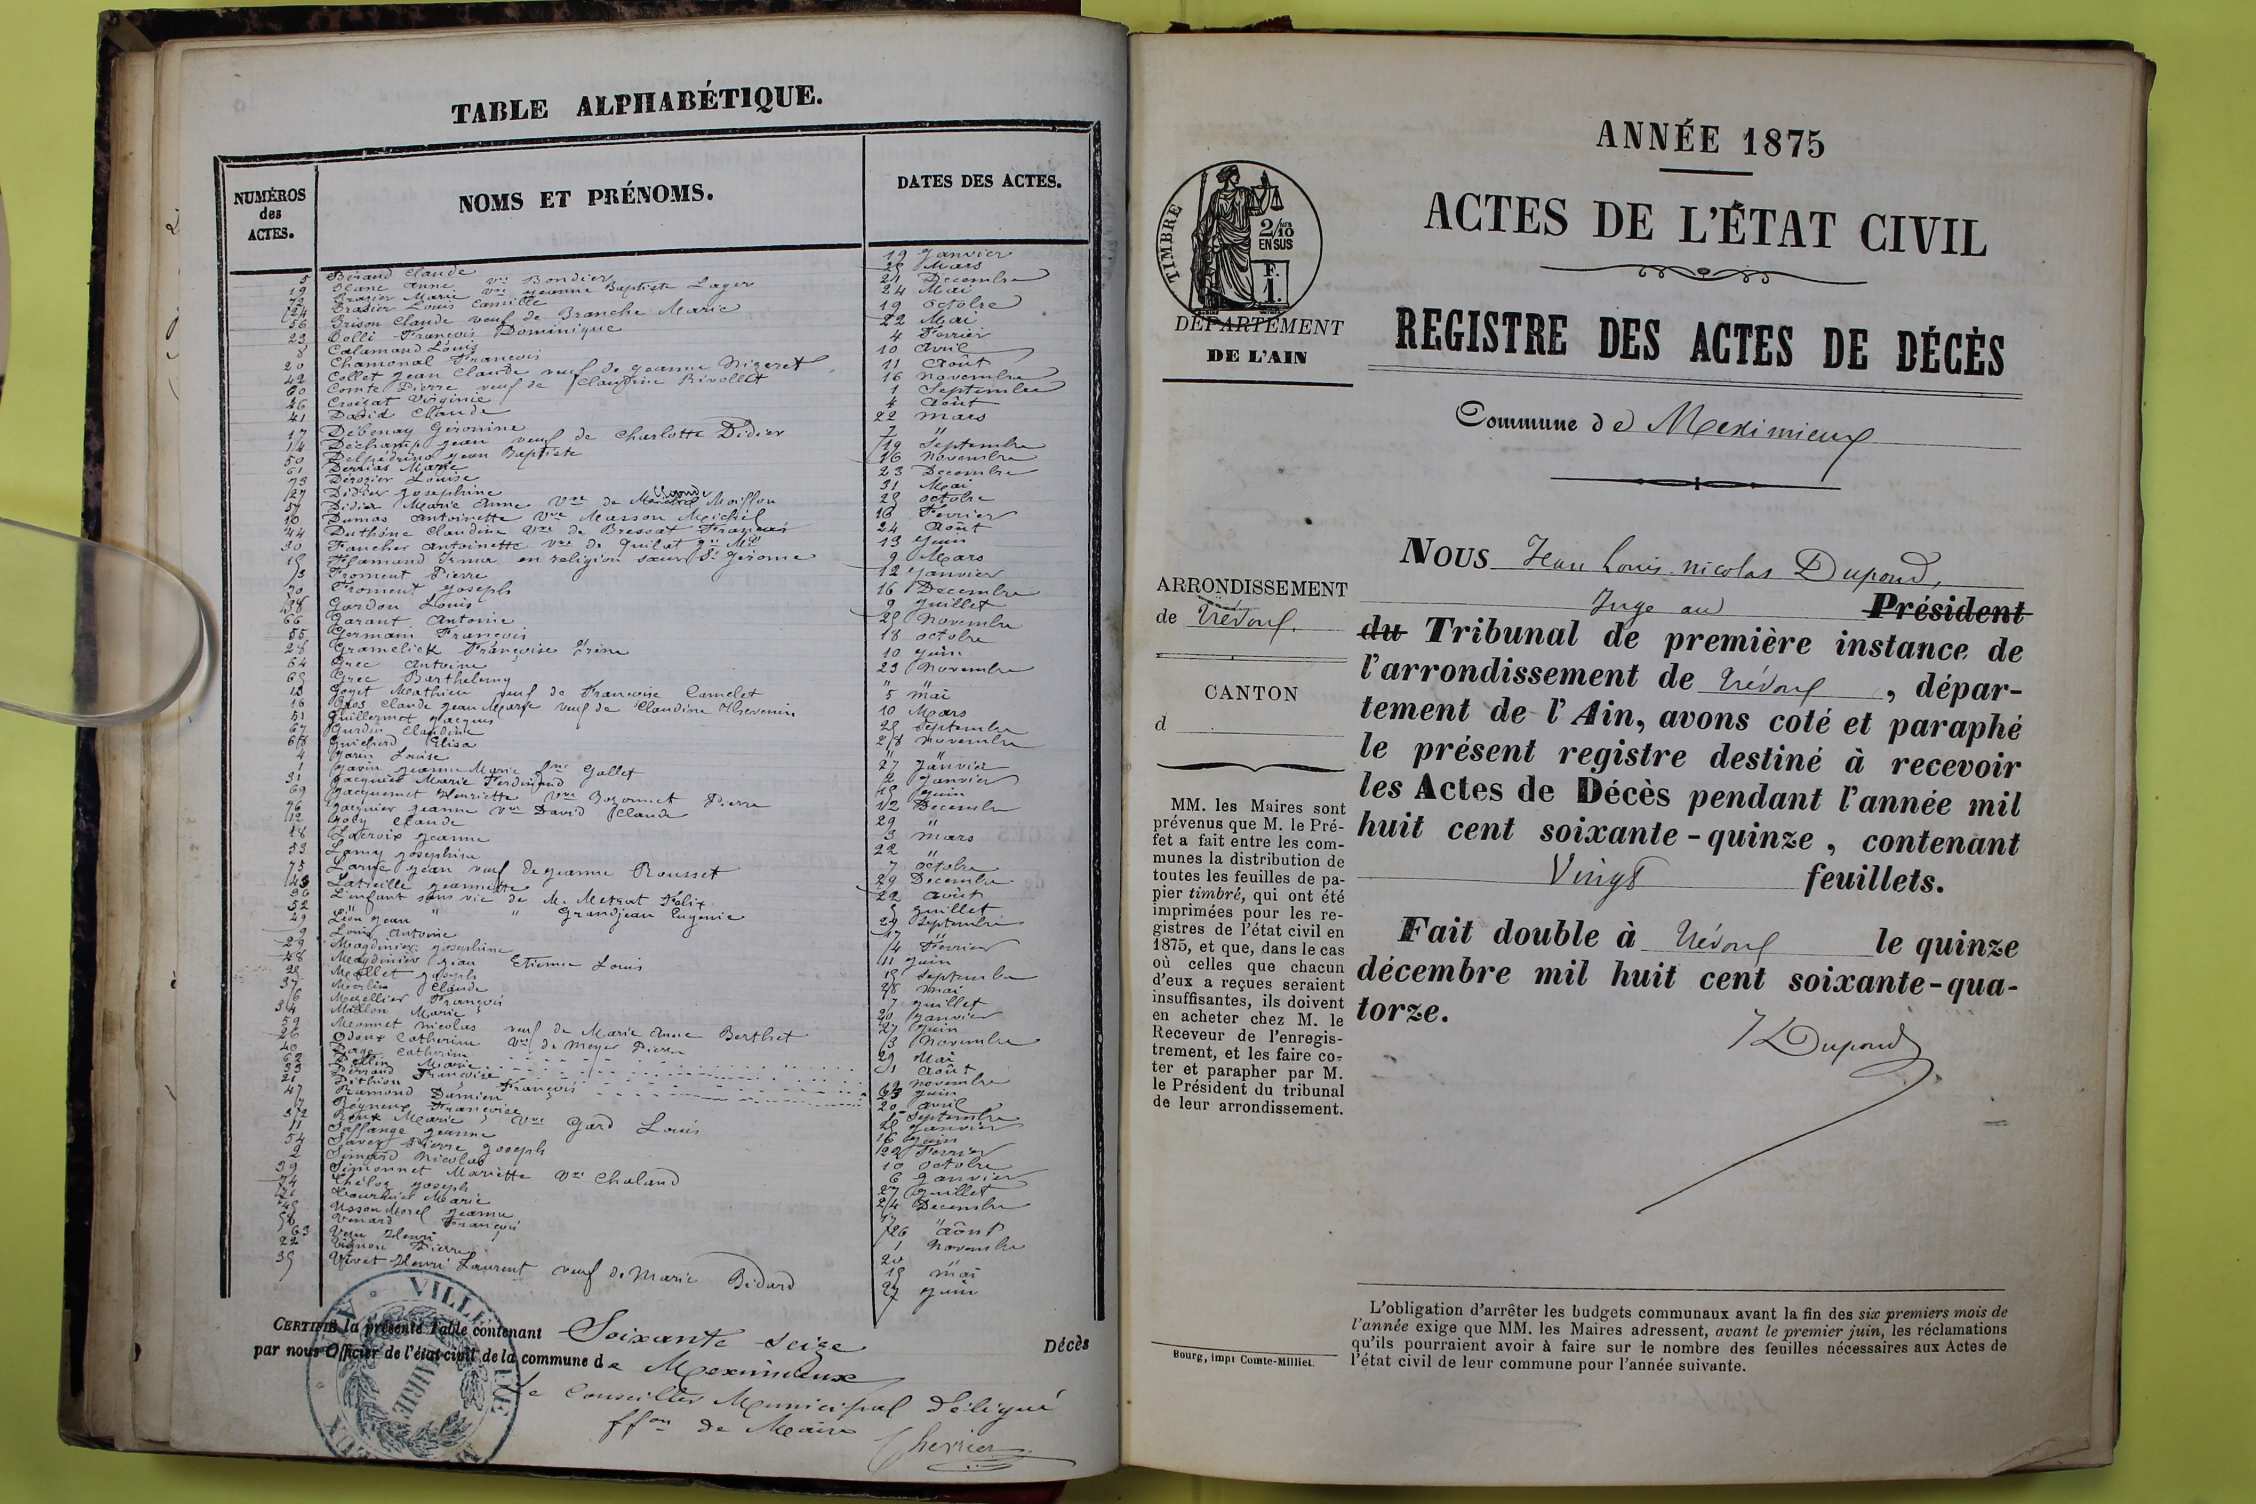 TABLE ALPHABÉTIQUE.
NUMÉROS
des
ACTES.
NOMS ET PRÉNOMS.
DATES DES ACTES.
5 Béraud Claude 19 Janvier
19 Blanc Anne Vve Bondier 25 Mars
72 Brasier Marie Vve Jeanne Baptiste Lager 21 Decembre
24 Brasier Louis Camille 24 Mai
56 Brison Claude veuf de Branche Marie 19 octobre
23 Bolli François Dominique 22 Mai
8 Calamand Louis 4 Fevrier
20 Chamonal François 10 Avril
42 Collet Jean Claude veuf de Jeanne Nigeret 11 Août
60 Comte Pierre veuf de Claudine Rivollet 16 Novembre
46 Croizat Virginie 1 Septembre
41 David Claude 4 Août
17 Débenay Géronine 22 Mars
14 Déchamp Jean veuf de Charlotte Didier 7 "
50 Delpédrino Jean Baptiste 19 Septembre
61 Derrias Marie 16 Novembre
73 Dérozier Louise 23 Decembre
27 Didier Josephine 31 Mai
57 Didier Marie Anne Vve de Moiffon 25 octobre
10 Dumas Antoinette Vve Masson Michel 16 Fevrier
44 Duthône Claudine Vve de Bressat François 24 Août
30 Fancher Antoinette Vve de Guilat 13 Juin
15 Flamand Irma en religion sœur St Gérome 9 Mars
3 Froment Pierre 12 Janvier
70 Froment Joseph 16 Decembre
38 Gardon Louis 9 Juillet
66 Garant Antoine 25 Novembre
55 Germain François 18 octobre
28 Gramelick Françoise Irène 10 Juin
64 Grec Antoine 23 Novembre
65 Grec Barthelemy " "
Goyet Mathieu veuf de Françoise Camelet 5 Mai
16 Gros Claude Jean Marie veuf de Claudine Thevenin 10 Mars
51 Guillermet Jacques 25 Septembre
67 Gurdin Claudine 28 Novembre
68 Guichard Elisa " "
4 Garin Louise 27 Janvier
1 Javin Jeanne Marie fme Gallet 2 Janvier
31 Jacquier Marie Ferdinand 15 Juin
69 Jacquemet Henriette Vve Bozonnet Pierre 12 Decembre
76 Jacquier Jeanne Vve David Claude 29 "
12 Joly Claude 3 Mars
18 Lacroix Jeanne 22 "
53 Lamy Josephine 7 octobre
75 Larue Jean veuf de Jeanne Rousset 29 Decembre
43 Latreille Jeannette 22 Août
36 L'enfant sans vie de M. Metrat Félix 5 Juillet
52 " " " Grandjean Eugenie 29 Septembre
49 Léon Jean 17 "
9 Louis Antoine 14 Fevrier
29 Magdinier Josephine 11 Juin
48 Magdinier Jean Etienne Louis 15 Septembre
25 Mallet Joseph 28 Mai
37 Merlin Claude 7 Juillet
6 Mezellier François 20 Janvier
34 Millon Marie 27 Juin
59 Monnet Nicolas veuf de Marie Anne Berthet 13 Novembre
26 Odoux Catherine Vve de Meyer Pierre 29 Mai
40 Page Catherine 1 Août
62 Pellin Marie 19 Novembre
33 Perraud Françoise 23 Juin
21 Pithion François 20 Avril
47 Ramond Damien Septembre
7 Reyneux Françoise 25 Janvier
32 Roux Marie Vve Gard Louis 16 Juin
11 Saffange Jeanne 22 Fevrier
54 Savey Pierre Joseph 10 octobre
2 Simond Nicolas 6 Janvier
39 Simonnet Mariette Vve Chaland 27 Juillet
74 Thélor Joseph 24 Decembre
Tournier Marie 17 "
45 Usson Morel Jeanne 26 Août
58 Venard François 1 Novembre
63 Veru Henri 20 "
22 Vignon Pierre 15 Mai
35 Vivet Henri Laurent veuf de Marie Bidard 27 Juin
CERTIFIÉ la présente Table contenant Soixante seize Décès
par nous Officier de l'état-civil de la commune de Meximieux
Le Conseiller Municipal Délégué
ffon de Maire
Cherrier
VILLE
MAIRIE
ANNÉE 1875
ACTES DE L'ÉTAT CIVIL
REGISTRE DES ACTES DE DÉCÈS
TIMBRE
2/10
EN SUS
DÉPARTEMENT
DE L'AIN
Commune de Meximieux
NOUS Jean Louis Nicolas Dupond,
Juge au Président
du Tribunal de première instance de
l'arrondissement de Trévoux, dépar-
tement de l'Ain, avons coté et paraphé
le présent registre destiné à recevoir
les Actes de Décès pendant l'année mil
huit cent soixante-quinze, contenant
Vingt feuillets.
Fait double à Trévoux le quinze
décembre mil huit cent soixante-qua-
torze.
Dupond
ARRONDISSEMENT
de Trévoux.
CANTON
d
MM. les Maires sont
prévenus que M. le Pré-
fet a fait entre les com-
munes la distribution de
toutes les feuilles de pa-
pier timbré, qui ont été
imprimées pour les re-
gistres de l'état civil en
1875, et que, dans le cas
où celles que chacun
d'eux a reçues seraient
insuffisantes, ils doivent
en acheter chez M. le
Receveur de l'enregis-
trement, et les faire co-
ter et parapher par M.
le Président du tribunal
de leur arrondissement.
Bourg, impr Comte-Milliet.
L'obligation d'arrêter les budgets communaux avant la fin des six premiers mois de
l'année exige que MM. les Maires adressent, avant le premier juin, les réclamations
qu'ils pourraient avoir à faire sur le nombre des feuilles nécessaires aux Actes de
l'état civil de leur commune pour l'année suivante.